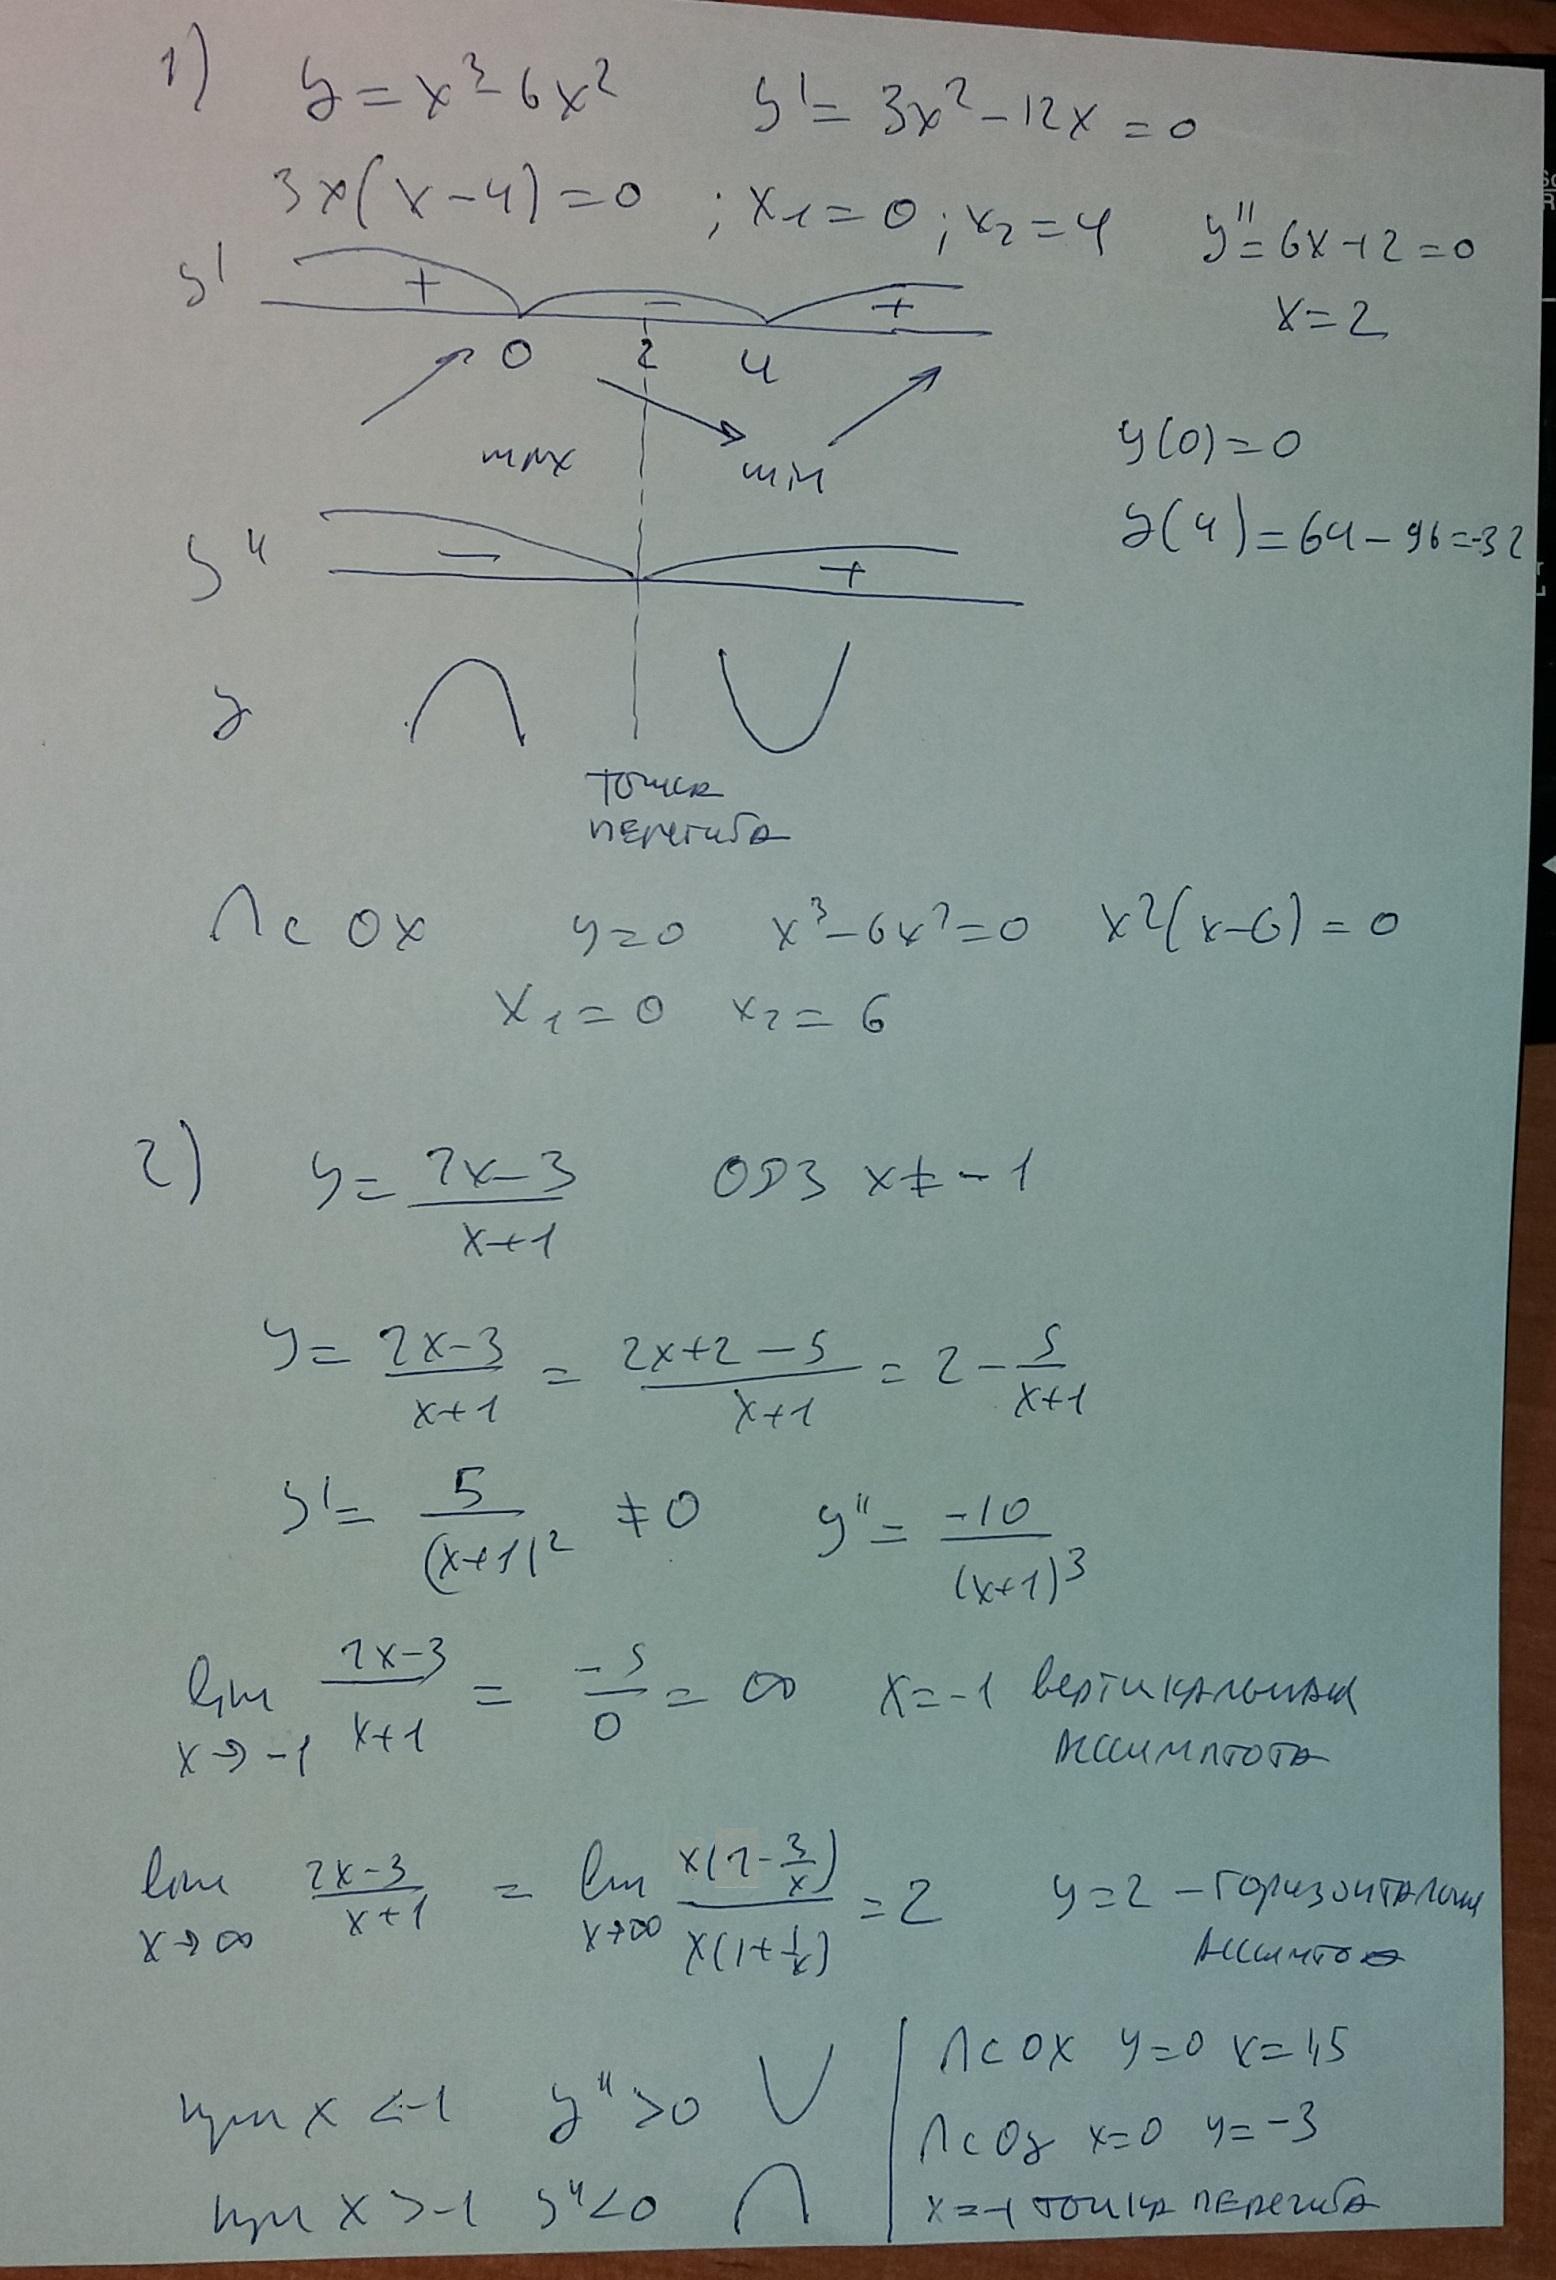 1) y = x³ - 6x² y' = 3x² - 12x = 0
3x(x-4) = 0 ; x₁ = 0 ; x₂ = 4 y'' = 6x-12 = 0
x = 2
y' + - +
0 2 4
max min
y(0) = 0
y(4) = 64 - 96 = -32
y'' - +
y
точка
перегиба
∩ с OX y=0 x³-6x²=0 x²(x-6) = 0
x₁ = 0 x₂ = 6
2) y = (2x-3)/(x+1) ОДЗ x ≠ -1
y = (2x-3)/(x+1) = (2x+2-5)/(x+1) = 2 - 5/(x+1)
y' = 5/(x+1)² ≠ 0 y'' = -10/(x+1)³
lim x→-1 (2x-3)/(x+1) = -5/0 = ∞ x=-1 вертикальная
ассимптота
lim x→∞ (2x-3)/(x+1) = lim x→∞ x(2-3/x)/x(1+1/x) = 2 y=2 - горизонтальная
при x < -1 y'' > 0 ∪
при x > -1 y'' < 0 ∩
∩ с OX y=0 x=1,5
∩ с Oy x=0 y=-3
x=-1 точка перегиба